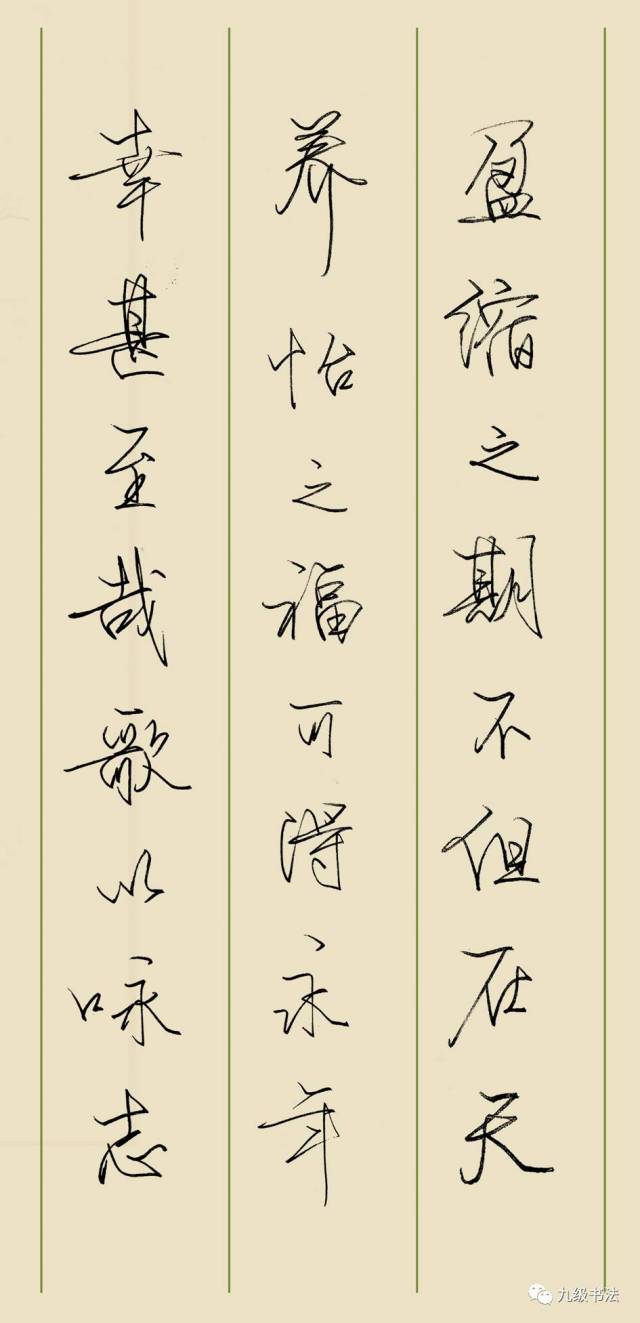 盈缩之期不但在天
养怡之福可得永年
幸甚至哉歌以咏志
九级书法